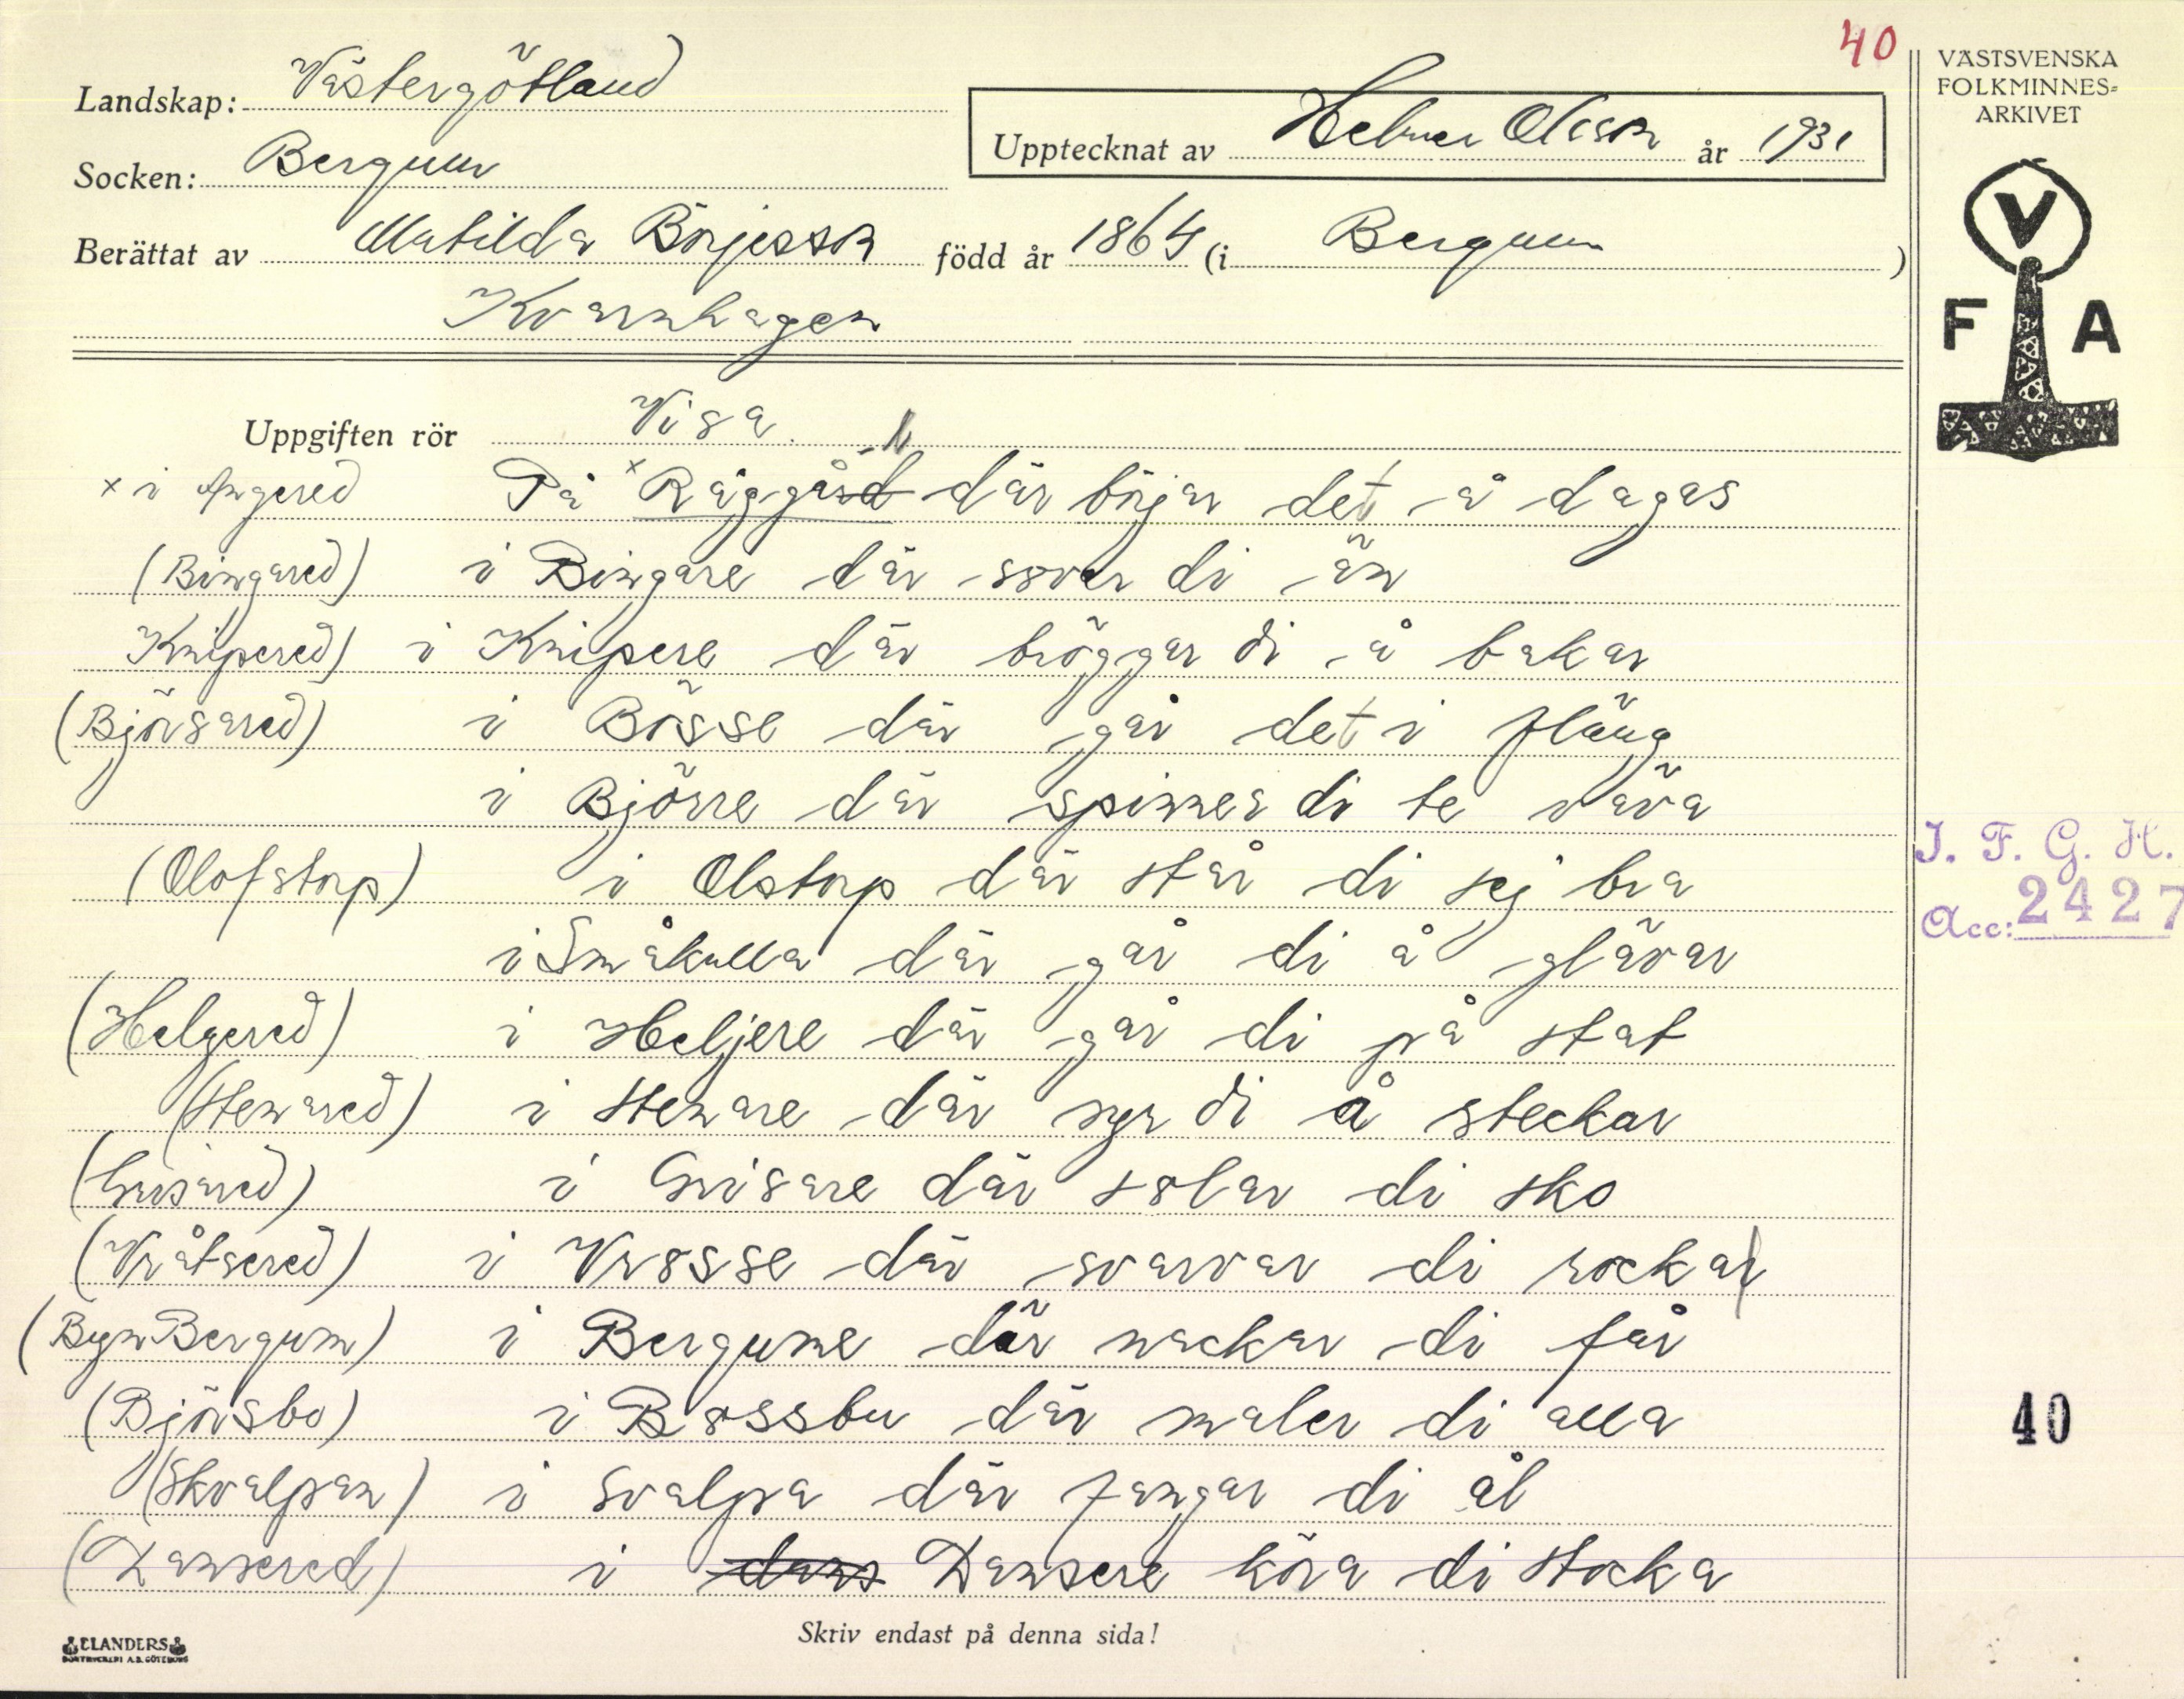 40
VÄSTSVENSKA
FOLKMINNES-
ARKIVET
Landskap: Västergötland
Upptecknat av Helmer Olsson år 1931
Socken: Bergum
Berättat av Matilda Börjesson född år 1864 (i Bergum)
Kvarnhagen
V
F A
Uppgiften rör Visa.
x i Angered På x Råggård där börjar det å dagas
(Bingared) i Bingare där sover di än
Knipered) i Knipere där bröggar di å bakar
(Björsared) i Bösse där går det i fläng
i Björre där spinner di te väva
(Olofstorp) i Olstorp där står di sej bra
i Småkulla där går di å glävar
(Helgered) i Heljere där går di på stat
(Stenared) i Stenare där syr di å steckar
(Grisared) i Grisare där solar di sko
(Vråtsered) i Vrosse där svarvar di rockar
(Byn Bergum) i Bergume där nackar di får
(Björsbo) i Bossbu där maler di alla
(Skvalpan) i Svalpa där fangar di ål
(Dansered) i dans Dansere köra di stocka
I. F. G. H.
Acc: 2427
40
Skriv endast på denna sida!
ELANDERS
BOKTRYCKERI A.B. GÖTEBORG